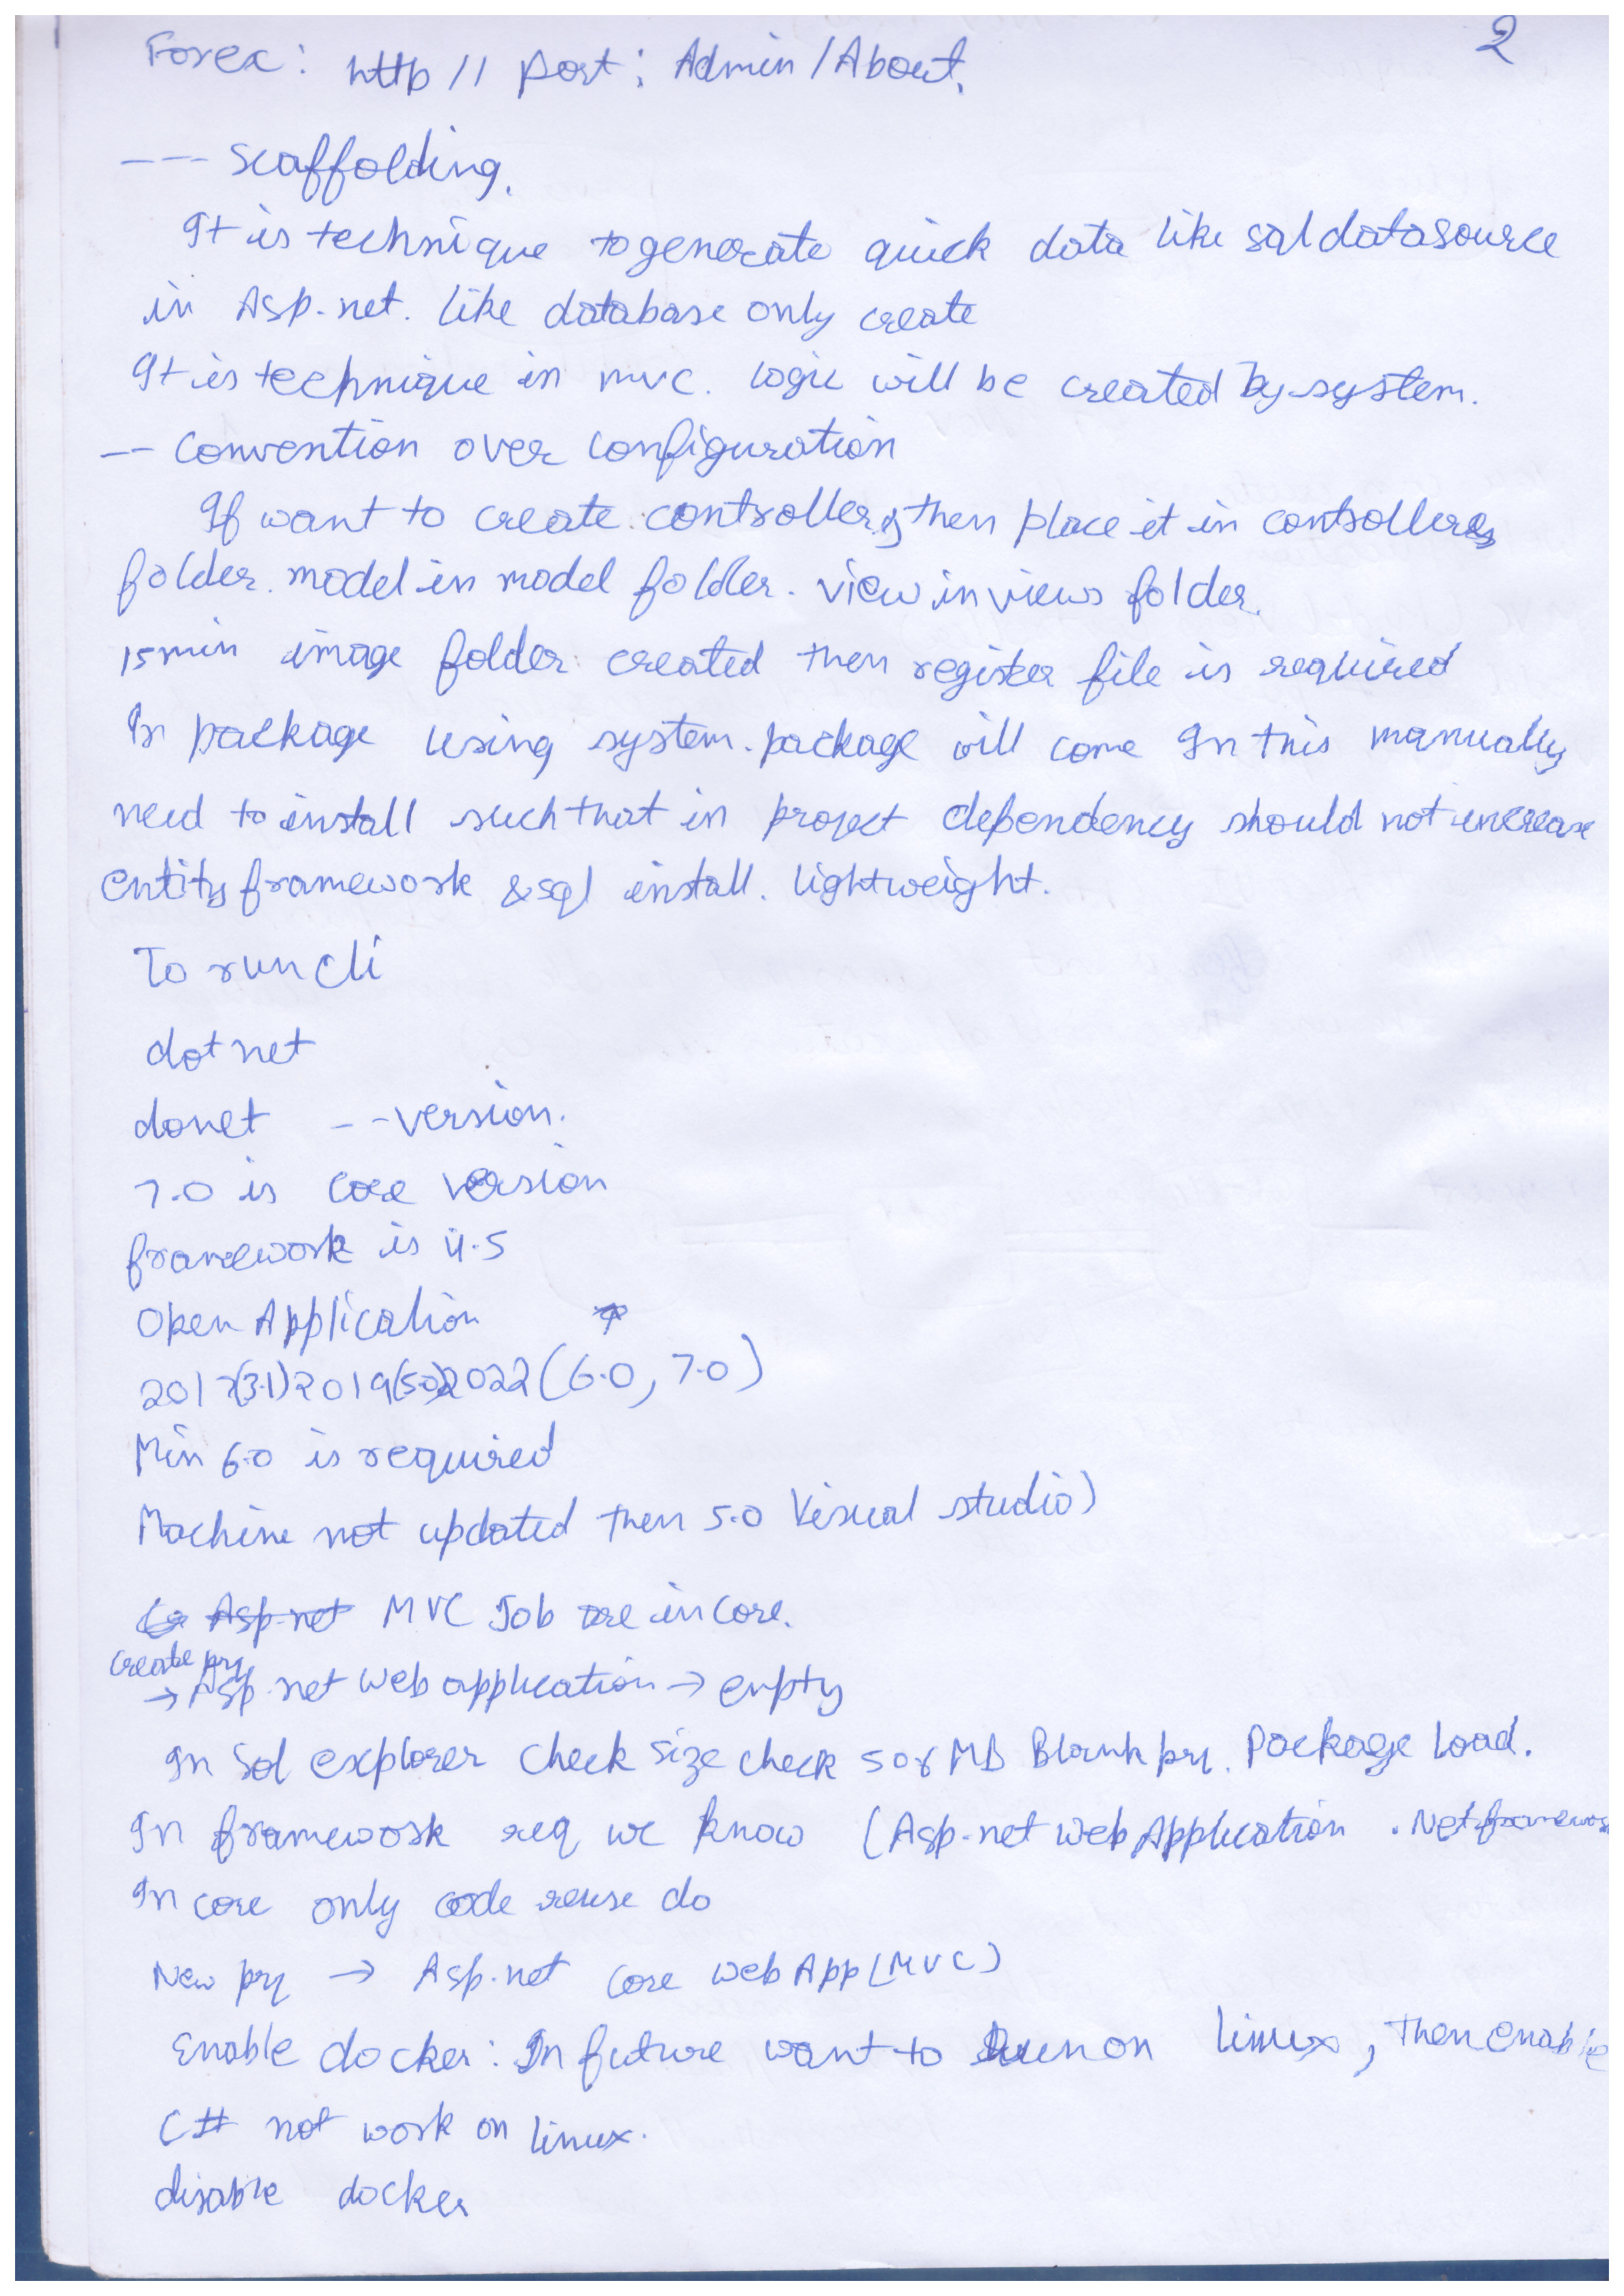 2
Forex: http // port: Admin/About.
--- scaffolding.
It is technique to generate quick data like sqldatasource
in Asp.net. like database only create
It is technique in mvc. logic will be created by system.
-- Convention over configuration
If want to create controller, then place it in controllers
folder. model in model folder. view in views folder.
15 min image folder created then register file is required
In package using system.package will come In this manually
need to install such that in project dependency should not increase
entity framework & sql install. lightweight.
To run cli
dotnet
donet --version.
7.0 is core version
framework is 4.5
Open Application
2017(3.1) 2019(5.0) 2022 (6.0, 7.0)
Min 6.0 is required
Machine not updated then 5.0 Visual studio)
Asp.net MVC Job are in core.
create prj
→ Asp.net web application → empty
In Sol explorer check size check 508 MB Blank prj. Package load.
In framework req we know (Asp.net web Application .Net framewor
In core only code reuse do
New prj → Asp.net core web App (MVC)
Enable docker: In future want to run on linux, then enable
C# not work on linux.
disable docker